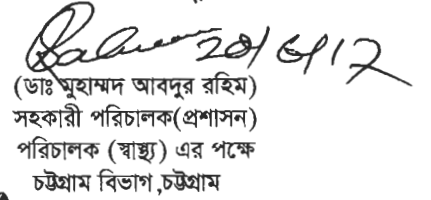 20/6/17
(ডাঃ মুহাম্মদ আবদুর রহিম)
সহকারী পরিচালক(প্রশাসন)
পরিচালক (স্বাস্থ্য) এর পক্ষে
চট্টগ্রাম বিভাগ,চট্টগ্রাম